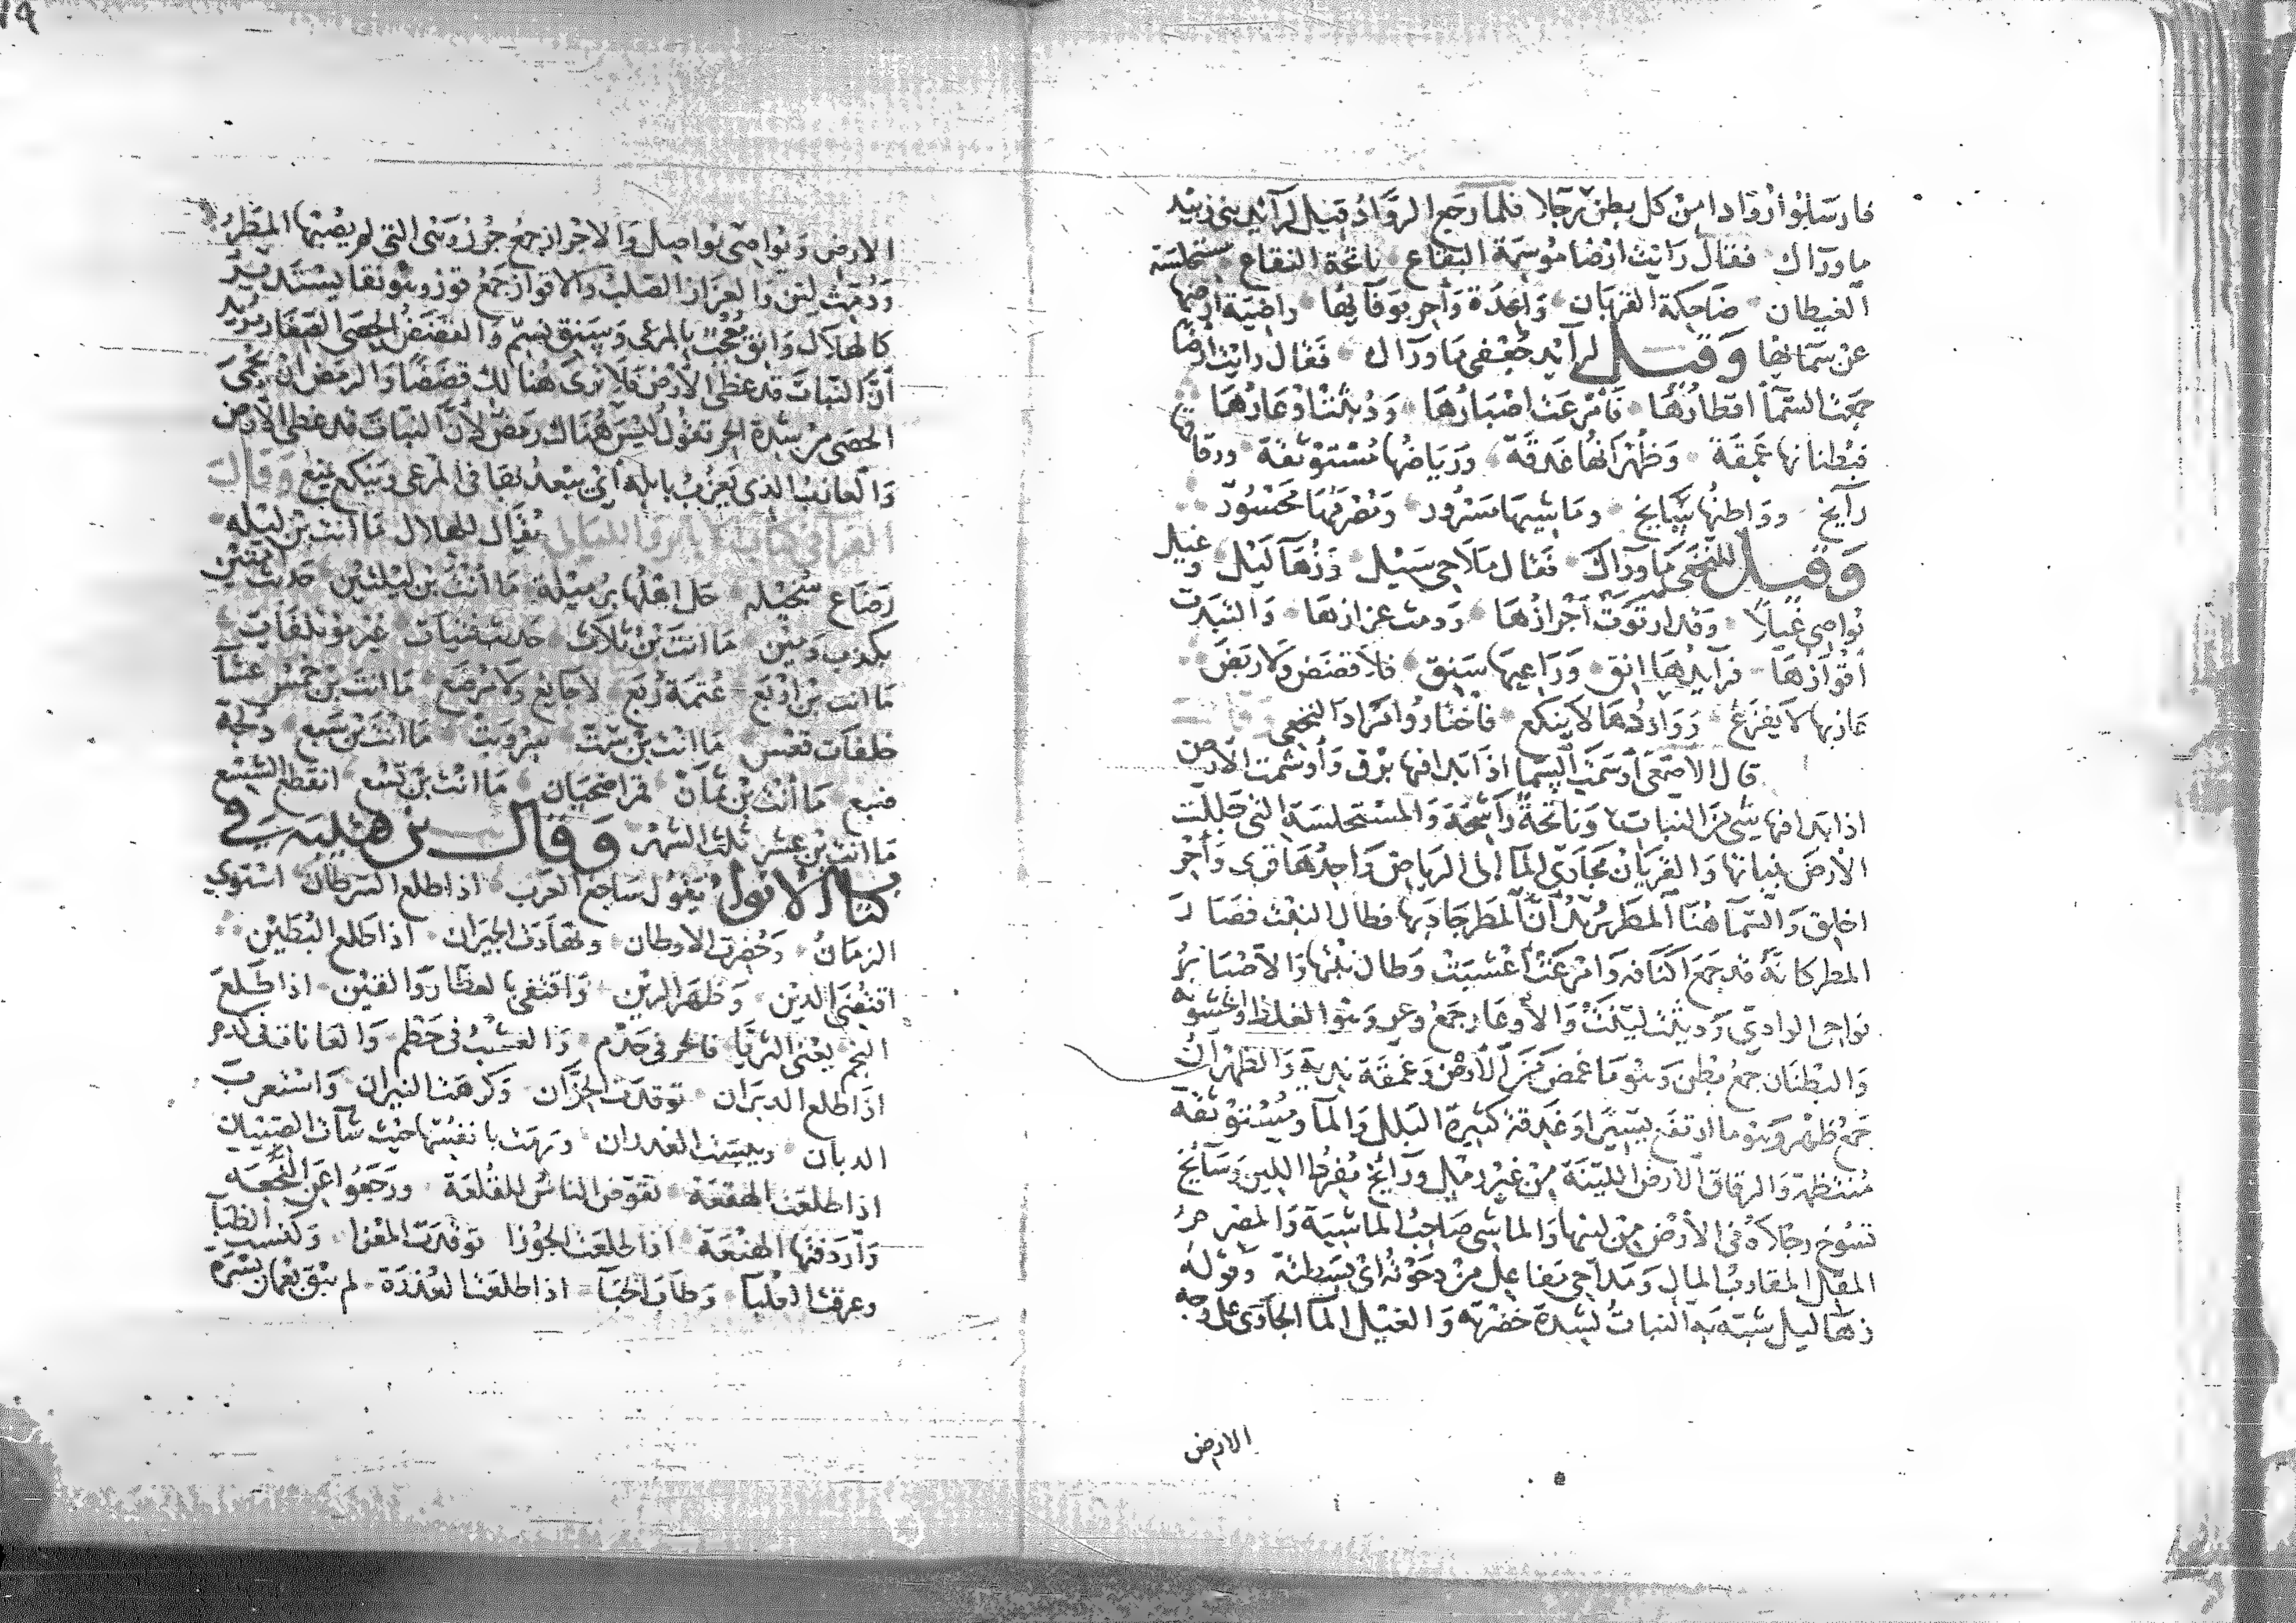 فارسلوا روادا من كل بطن رجلا فلما رجع الرواد قيل لرآيد بنى زبيد
ما ورآك فقال رايت ارضا موشمة البقاع ناتحة النقاع مستحلسة
الغيطان ضاحكة القريان واعدة وأحر بوفآئها راضية ارضها
عن سمائها وقيل لرآيد جعفى ما ورآك فقال رايت ارضا
جمعت السمآ اقطارها فأمرعت اصبارها وديثت اوعارها
فبطنانها غمقة وظهرانها غدقة ورياضها مستوثقة ورقاقها
رآيخ وواطئها سايخ وماشيها مسرور ومصرمها محسود
وقيل للنخعى ما ورآك فقال مداحى سيل وزهآ ليل وغيل
نواصى غيلا وقد ارتوت أجرازها ودمث عزازها والتبدت
اقوازها فرآيدها انق وراعيها سنق فلا قضض ولا رمض
عازبها لا يفزع وواردها لا ينكع فاختاروا مراد النخعى
قال الاصمعى أوشمت السمآ اذا بدا فيها برق وأوشمت الارض
اذا بدا فيها شى من النبات وناتحة رآشحة والمستحلسة التى جللت
الارض بنباتها والقريان مجارى المآ الى الرياض واحدها قرى وأحر
اخلق والسمآ هنا المطر يريد أن المطر جاد بها فطال النبت فصار
المطر كانه قد جمع اكنافه وامرعت أعشبت وطال نبتها والاصبار
نواحى الوادى وديثت لينت والأوعار جمع وعر وهو الغلظ والخشونه
والبطنان جمع بطن وهو ما غمض من الارض وغمقة ندية والظهران
جمع ظهر وهو ما ارتفع يسيرا وغدقة كثيرة البلل والمآ ومستوثقة
منتظمة والرقاق الارض اللينة من غير رمل ورآيخ مفرط اللين وسآيخ
تسوخ رجلاه فى الأرض من لينها والماشى صاحب الماشية والمصرم
المقل المقارب المال ومداحى مفاعل من دحوته اى بسطته وقوله
زهآ ليل شبه به النبات لشدة خضرته والغيل المآ الجارى على وجه
الارض
الارض ونواصى نواصل والاجراز جمع جرز وهى التى لم يصبها المطر
ودمث لين والعزاز الصلب والاقواز جمع قوز وهو نقا يستدير
كالهلال وانق معجب بالمرعى وسنق بشم والقضض الحصى الصغار يريد
أن النبات قد غطى الأرض فلا ترى هنا لك قضضا والرمض ان يحمى
الحصى من شدة الحر تقول ليس هناك رمض لأن النبات قد غطى الارض
والعازب الذى يعزب بابله أى يبعد بها فى المرعى وينكع يمنع وقال
الفرا فى كتاب الايام والليالى يقال للهلال ما أنت بن ليله
رضاع سخيله حل اهلها برميلة ما أنت بن ليلتين حديث امتين
بكذب ومين ما انت بن ثلاث حديث فتيات غير مؤتلفات
ما انت بن اربع عتمة ربع لا جايع ولا مرضع ما انت بن خمس عشآ
خلفات قعس ما انت بن ست سر وبت ما انت بن سبع دلجة
ضبع ما أنت بن ثمان قمر اضحيان ما انت بن تسع انقطع الشسع
ما انت بن عشر ثلث الشهر وقال بن قتيبة فى
كتاب الانوا يقول ساجع العرب اذا طلع السرطان استوى
الزمان وخضرت الاوطان وتهادت الجيران اذا طلع البطين
اقتضى الدين وظهر الزين واقتفى بالعطار والقين اذا طلع
النجم يعنى الثريا فالحر فى حدم والعشب فى حطم والعانات فى كدم
اذا طلع الدبران توقدت الحزان وكرهت النيران واستعرت
الذبان ويبست الغدران ورمت بأنفسها حيث شآت الصبيان
اذا طلعت الهقعة تقوض الناس للقلعة ورجعوا عن النجعه
وأردفتها الهنعة اذا طلعت الجوزا توقدت المعزا وكنست الظبآ
وعرقت العلبآ وطاب الخبآ اذا طلعت العذرة لم يبق بعمان بسرة